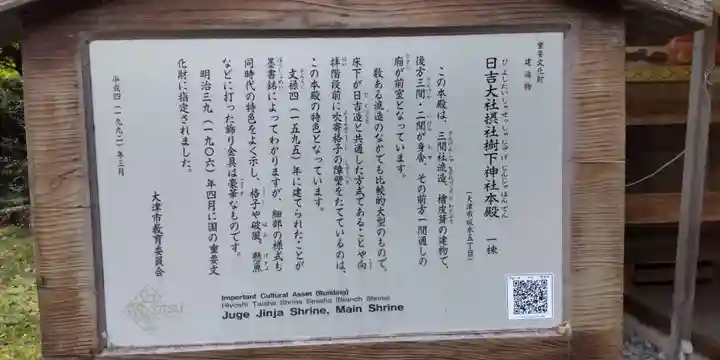 重要文化財
建造物
日吉大社摂社樹下神社本殿 一棟
ひよしたいしゃせっしゃじゅげじんじゃほんでん
(大津市坂本五丁目)
この本殿は、三間社流造、檜皮葺の建物で、
後方三間・二間が身舎、その前方一間通しの
廂が前室となっています。
数ある流造のなかでも比較的大型のもので、
床下が日吉造と共通した方式であることや向
拝階段前に吹寄格子の障壁をたてているのは、
この本殿の特色となっています。
文禄四(一五九五)年に建てられたことが
墨書銘によってわかりますが、細部の様式も
同時代の特色をよく示し、格子や破風、懸魚
などに打った飾り金具は豪華なものです。
明治三九(一九〇六)年四月に国の重要文
化財に指定されました。
平成四(一九九二)年三月
大津市教育委員会
Important Cultural Asset (Building)
Hiyoshi Taisha Shrine Sessha (Branch Shrine)
Juge Jinja Shrine, Main Shrine
OTSU